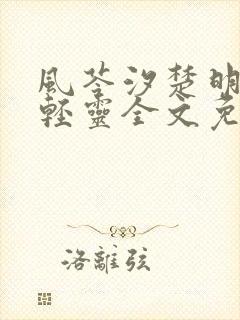 風荃汐楚明
輕靈全文免
洛離弦